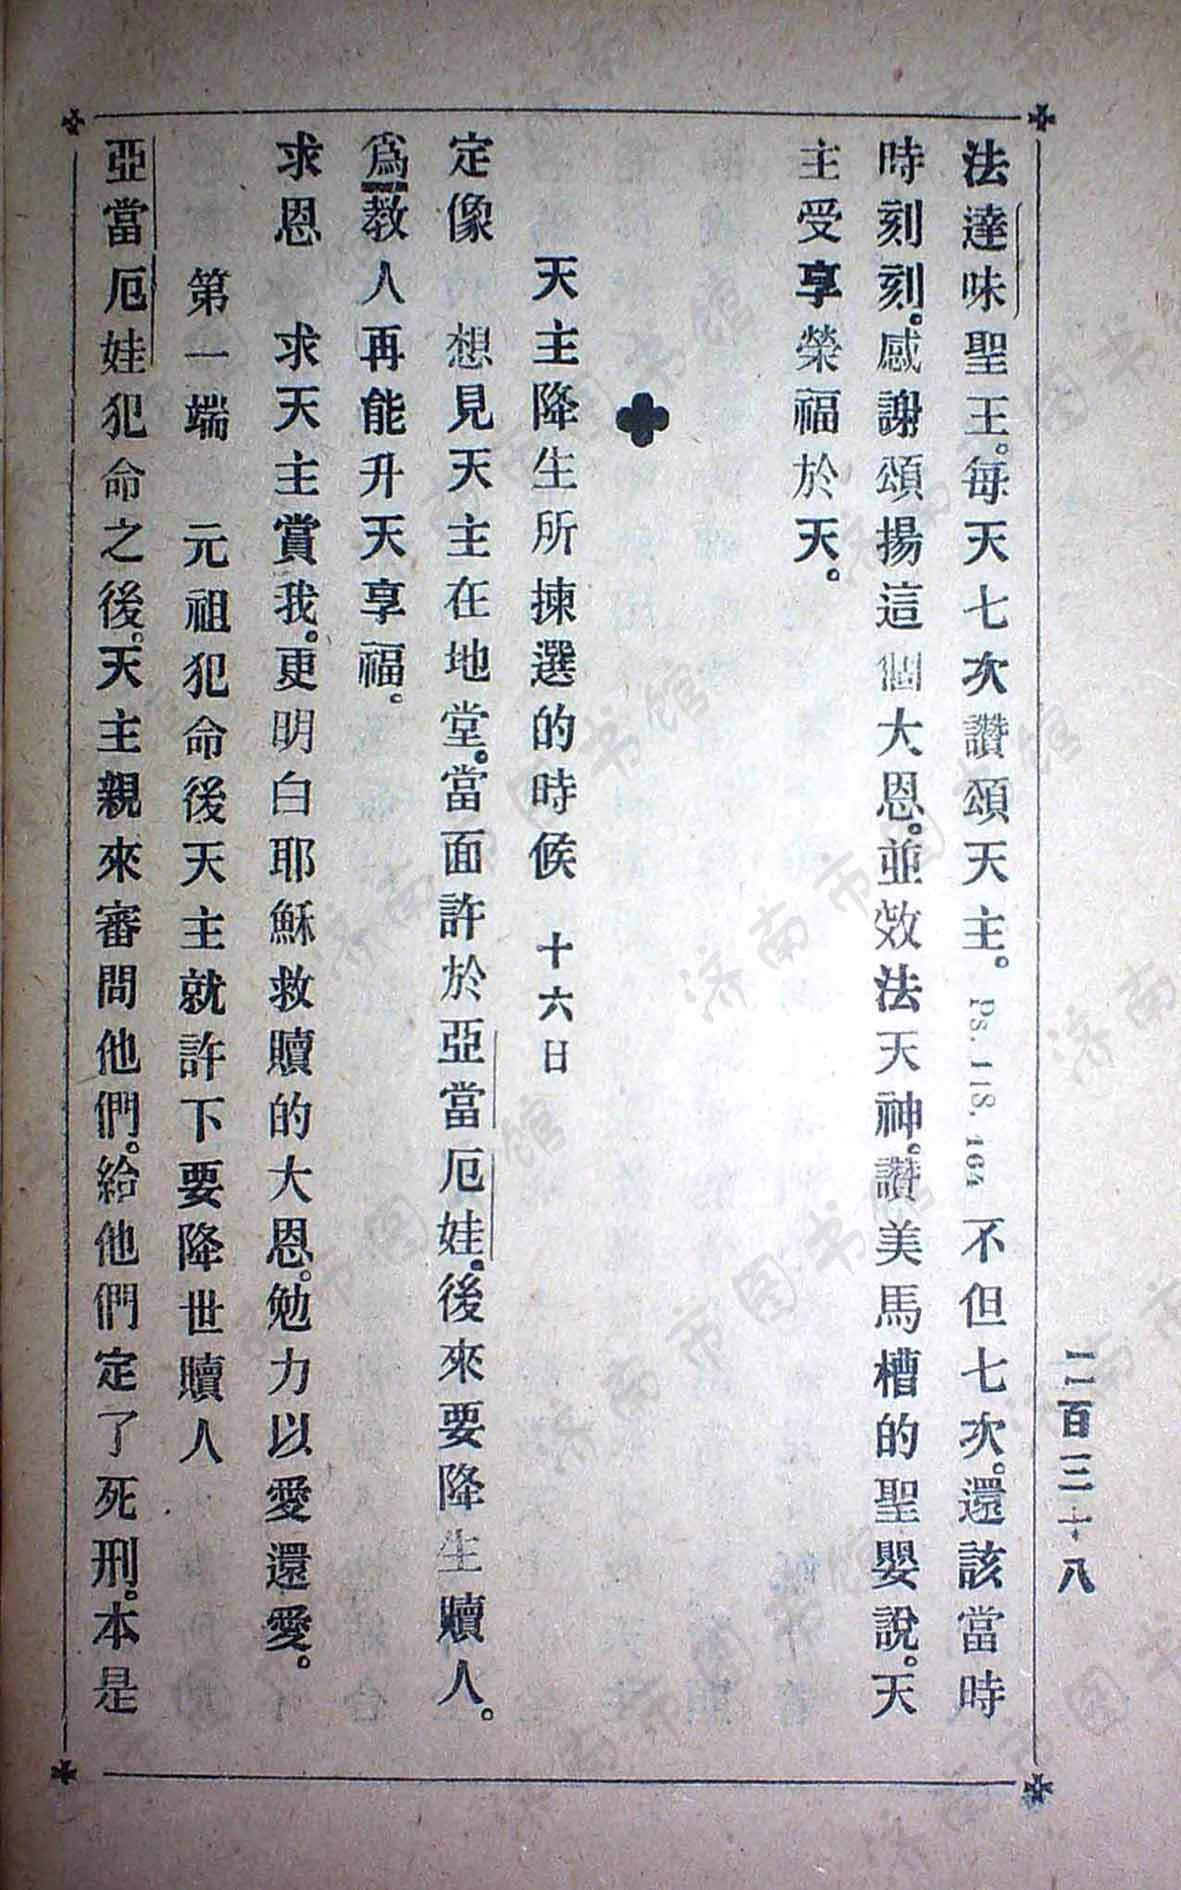 法達味聖王。每天七次讚頌天主。Ps. 118. 164 不但七次。還該當時
時刻刻。感謝頌揚這個大恩。並效法天神。讚美馬槽的聖嬰說。天
主受享榮福於天。
天主降生所揀選的時候 十六日
定像 想見天主在地堂。當面許於亞當厄娃。後來要降生贖人。
為教人再能升天享福。
求恩 求天主賞我。更明白耶穌救贖的大恩。勉力以愛還愛。
第一端 元祖犯命後天主就許下要降世贖人
亞當厄娃犯命之後。天主親來審問他們。給他們定了死刑。本是
二百三十八
济南市图书馆